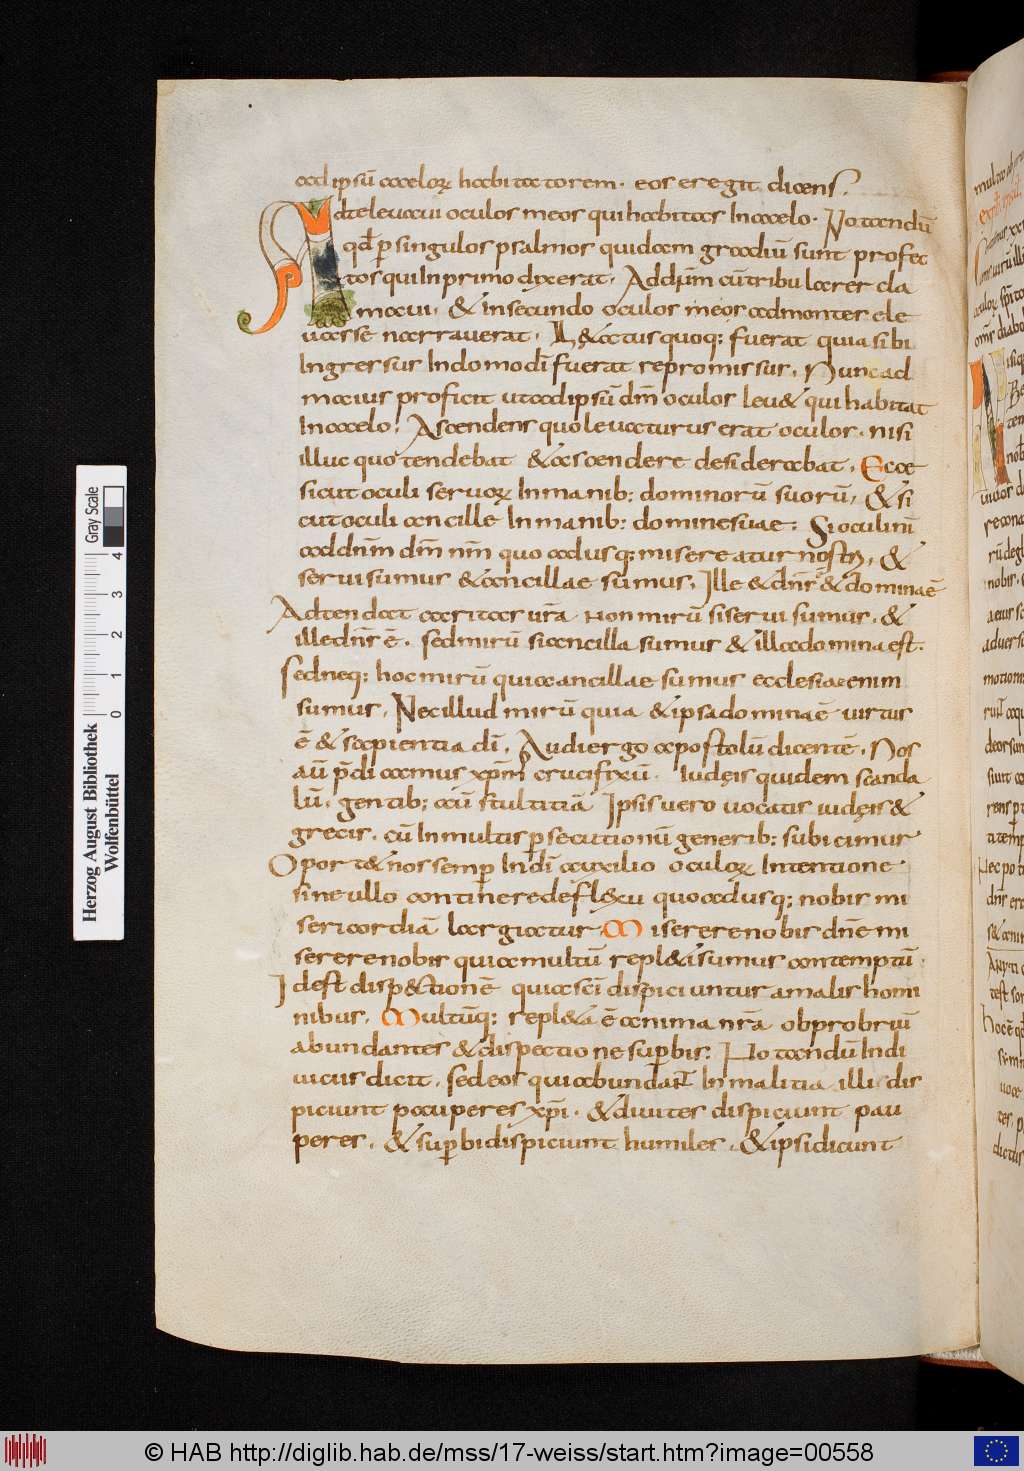 ad ipsū caeloꝝ habitatorem· eos eregit dicens·
Ad te levavi oculos meos qui habitas In caelo· Notandū
qđ p̄ singulos psalmos quidam gradiū sunt profec
tos qui In primo dixerat· Ad dn̄m cū tribularer cla
mavi· & in secundo oculos meos ad montes ele
vasse narraverat· L&atus quoq; fuerat quia sibi
Ingressus In domo dn̄i fuerat repromissus· Nunc ad
maius proficit ut ad ipsū dn̄m oculos lev& qui habitat
In caelo· Ascendens quo levaturus erat oculos· nisi
illuc quo tendebat & ascendere desiderabat· Ecce
sicut oculi servoꝝ In manib; dominorū suorū· & si
cut oculi ancille In manib; domine suae· Si oculi nr̄i
ad dn̄m dm̄ nr̄m quo adusq; misereatur nostri· &
servi sumus & ancillae sumus· Ille & dn̄s & domina ē
Adtendat caritas vr̄a Non mirū si servi sumus· &
ille dn̄s ē· sed mirū si ancilla sumus & illa domina est·
sed neq; hoc mirū quia ancillae sumus ecclesia enim
sumus· Nec illud mirū quia & ipsa domina ē virtus
ē & sapientia dī· Audi ergo apostolū dicentē· Nos
aū p̄dicamus xp̄m crucifixū· Iudęis quidem scanda
lū· gentib; aū stultitiā Ipsis vero vocatis iudęis &
grecis· cū In multis p̄secutionū generib; subicimur
Oport& nos semp̄ In dī auxilio oculoꝝ Intentione
sine ullo continere deflexu quo adusq; nobis mi
sericordiā largiatur· Miserere nobis dn̄e mi
serere nobis quia multū repl&i sumus contemptū·
Idest disp&tionē quia sc̄i dispiciuntur a malis homi
nibus· Multūq; repl&a ē anima nr̄a obprobriū
abundantes & dispectione sup̄bis; Notandū In di
vicus dicit· sed eos qui abundant In malitia illi dis
piciunt pauperes xp̄i· & divites dispiciunt pau
peres· & sup̄bi dispiciunt humiles· & ipsi dicunt
Herzog August Bibliothek
Wolfenbüttel
0 1 2 3 4
Gray Scale
© HAB http://diglib.hab.de/mss/17-weiss/start.htm?image=00558